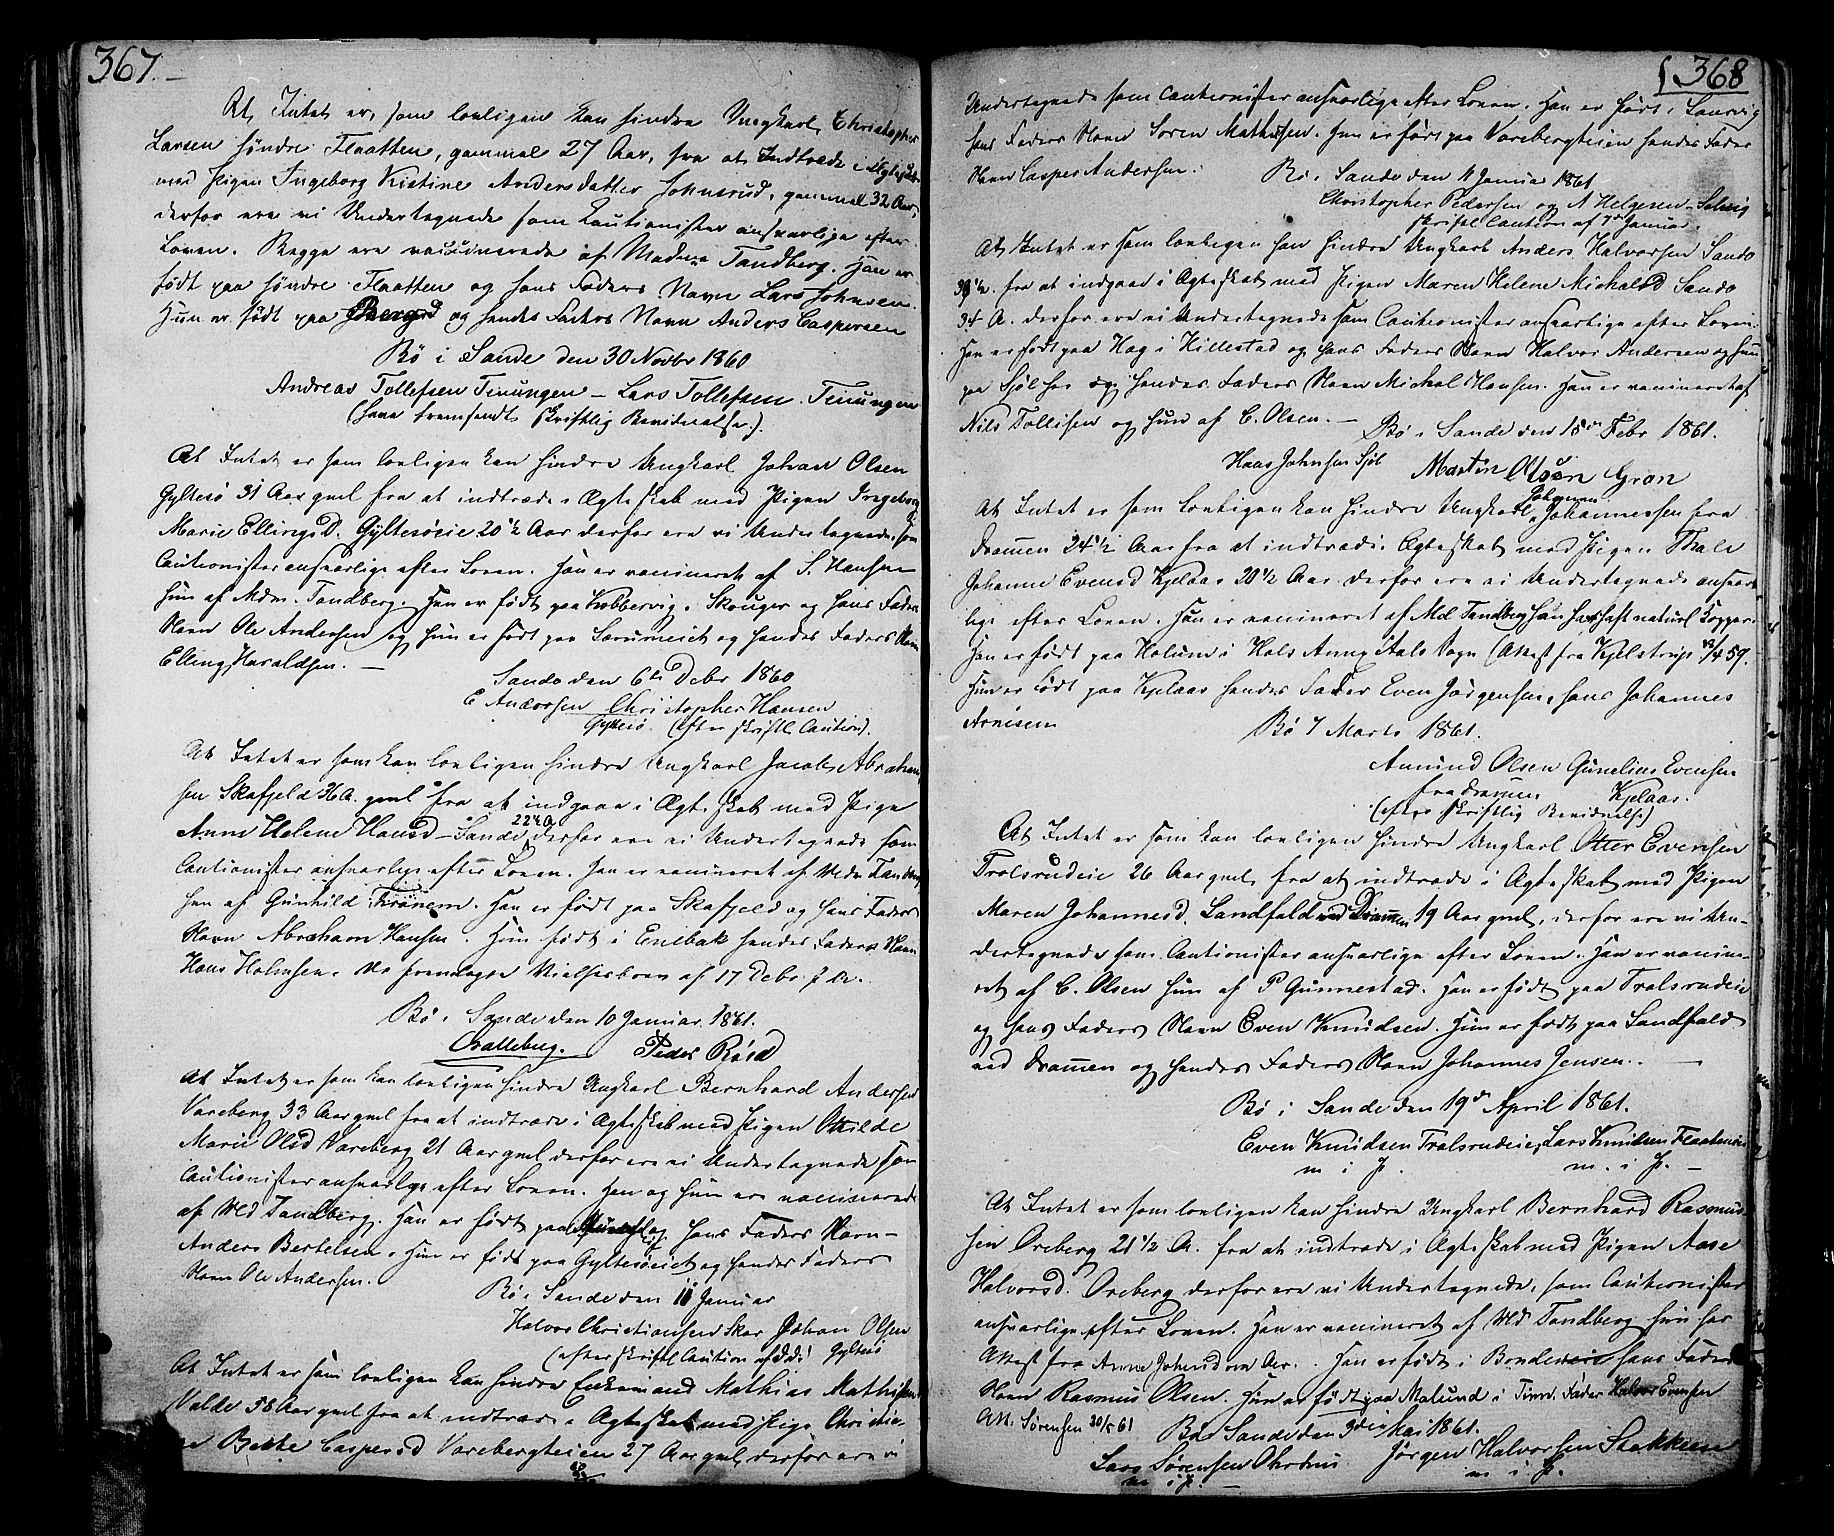 367.
At Intet er, som lovligen kan hindre Ungkarl Christopher
Larsen søndre Flaatten, gammel 27 Aar, fra at Indtræde i Ægteskab
med Pigen Ingeborg Kistine Andersdatter Johnsrud, gammel 32 Aar,
derfor ere vi Undertegnede som Cautionister ansvarlige efter
Loven. Begge ere vaccinerede af Madme Tandberg. Han er
født paa søndre Flaatten og hans Faders Navn Lars Johnsen.
Hun er født paa og hendes Faders Navn Anders Caspersen
Bø i Sande den 30 Novbr 1860
Andreas Tollefsen Tinungen – Lars Tollefsen Tinungen
(have fremsendt skriftlig Bevidnelse.).
At Intet er som lovligen kan hindre Ungkarl Johan Olsen
Gyltesø 31 Aar gml fra at indtræde i Ægteskab med Pigen Ingeborg
Marie EllingsD. Gyltesøeie 20 1/2 Aar derfor ere vi Undertegnede som
Cautionister ansvarlige efter Loven. Han er vaccineret af S. Hansen
Hun af Mdm. Tandberg. Han er født paa Kobbervig i Skouger og hans Faders
Navn Ole Andersen og Hun er født paa og hendes Faders Navn
Elling Haraldsen. –
Sande den 6te Debr 1860
E Andersen Christopher Hansen
Gyltesø (efter skriftl Caution).
At Intet er som kan lovligen hindre Ungkarl Jacob Abraham-
sen Skafjeld 36 A. gml fra at indgaa i Ægteskab med Pige
Anne Helene HansD – Sande 22 A derfor ere vi Undertegnede som
Cautionister ansvarlige efter Loven. Han er vaccineret af Mdm Tandberg
hun af Gunhild. Han er født paa Skafjeld og hans Faders
Navn Abraham Hansen. Hun født i Enebak hendes Faders Navn
Hans Holmsen. af 17 Debr
Bø i Sande den 10 Januar 1861.
Peder Røsd
At Intet er som kan lovligen hindre Ungkarl Bernhard Andersen
Vareberg 33 Aar gml fra at indtræde i Ægteskab med Pigen Othilde
Marie OlsD Vareberg 21 Aar gml derfor ere vi Undertegnede som
Cautionister ansvarlige efter Loven. Han og hun ere vaccinerede
af Md Tandberg. Han er født paa hans Faders Navn –
Anders Bertelsen. Hun er født paa Gyltesøeiet og hendes Faders
Navn Ole Andersen.
Bø i Sande den 11 Januar
Halvor Christiansen Skar Johan Olsen
(efter skriftl Caution af D.D.) Gyltesø
At Intet er som lovligen kan hindre Enkemand Mathias Mathisen
Valde 58 Aar gml fra at indtræde i Ægteskab med Pige Christia-
ne Berte CaspersD Varebergteien 27 Aar gml, derfor ere vi
368
Undertegnede som Cautionister ansvarlige efter Loven. Han er født i Laurvig
hans Faders Navn Soren Mathisen. Hun er født paa Varebergteien hendes Fader
Navn Casper Andersen.
Bø i Sande den 11 Januar 1861
Christopher Pedersen og N Helgesen – Selvig
skriftl Caution af 7de Januar.
At Intet er som lovligen kan hindre Ungkarl Anders Halvorsen Sando
fra at indgaae i Ægteskab med Pigen Maren Helene MichalsD Sando
34 A. derfor ere vi Undertegnede som Cautionister ansvarlige efter Loven.
Han er født paa Hag i Hillestad og hans Faders Navn Halvor Andersen og hun
paa Sjøl her og hendes Faders Navn Michal Hansen. Han er vaccineret af
Nils Tollisen og hun af C. Olsen. –
Bø i Sande den 15de Febr 1861.
Haas Johnsen Sjøl Martin Olsen Grøn
At Intet er som lovligen kan hindre Ungkarl Johannessen fra
Dramen 24 1/2 Aar fra at indtræde i Ægteskab med Pigen Thale
Johanne EvensD Kjelaas 20 1/2 Aar derfor ere vi Undertegnede ansvar-
lige efter Loven. Hun er vaccineret af Md Tandberg han har haft naturl Kopper.
Han er født paa Holum i Hols Annex Aals Sogn (Attest fra Kjelstrup 59.
Hun er født paa Kjelaas hendes Fader Even Jørgensen, hans Johannes
Arnesen
Bø 7 Marts 1861.
Amund Olsen Gunelius Evensen
fra Dramen Kjelaas.
(efter skriftlig Bevidnelse)
At Intet er som kan lovligen hindre Ungkarl Otter Evensen
Trolsrudeie 26 Aar gml, fra at indtræde i Ægteskab med Pigen
Maren JohannesD. Landfald ved Dramen 19 Aar gml, derfor ere vi Un-
dertegnede som Cautionister ansvarlige efter Loven. Han er vaccine-
ret af C. Olsen Hun af P Gunnestad. Han er født paa Trolsrudeie
og hans Faders Navn Even Knudsen. Hun er født paa Landfald
ved Dramen og hendes Faders Navn Johannes Jensen. –
Bø i Sande den 19de April 1861.
Even Knudsen Trolsrudeie, Lars Knudsen
m i P. m. i P. –
At Intet er som lovligen kan hindre Ungkarl Bernhard Rasmus-
sen Oreberg 21 1/2 A. fra at indtræde i Ægteskab med Pigen Aase
HalvorsD. Oreberg derfor ere vi Undertegnede, som Cautionister
ansvarlige efter Loven. Han er vaccineret af Md Tandberg hun har
Attest fra Anne JohnsD om. Han er født i hans Fader
Navn Rasmus Olsen. Hun er født paa Malund i Tinn. Fader Halvor Evensen
Att. Sørensen 30/5 61
Bø i Sande den 3die Mai 1861.
Lars Sørensen Jørgen Halvorsen Stakken
m i P. – m i P.